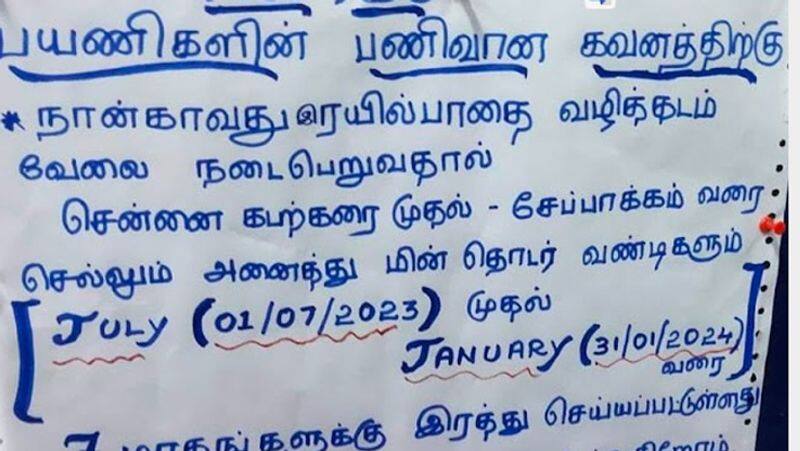 பயணிகளின் பணிவான கவனத்திற்கு
* நான்காவது இரயில்பாதை வழித்தடம்
வேலை நடைபெறுவதால்
சென்னை கடற்கரை முதல் - சேப்பாக்கம் வரை
செல்லும் அனைத்து மின் தொடர் வண்டிகளும்
[ JULY (01/07/2023) முதல்
JANUARY (31/01/2024)
வரை ]
7 மாதங்களுக்கு இரத்து செய்யப்பட்டுள்ளது